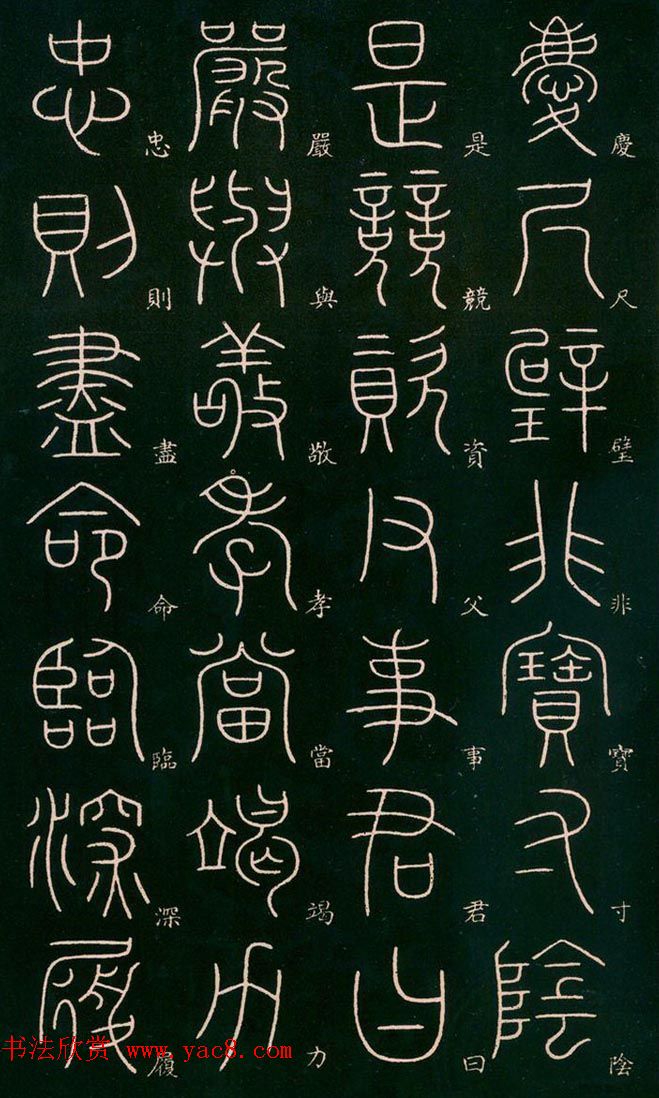 慶尺璧非寶寸陰
是競資父事君曰
嚴與敬孝當竭力
忠則盡命臨深履
书法欣赏 www.yac8.com